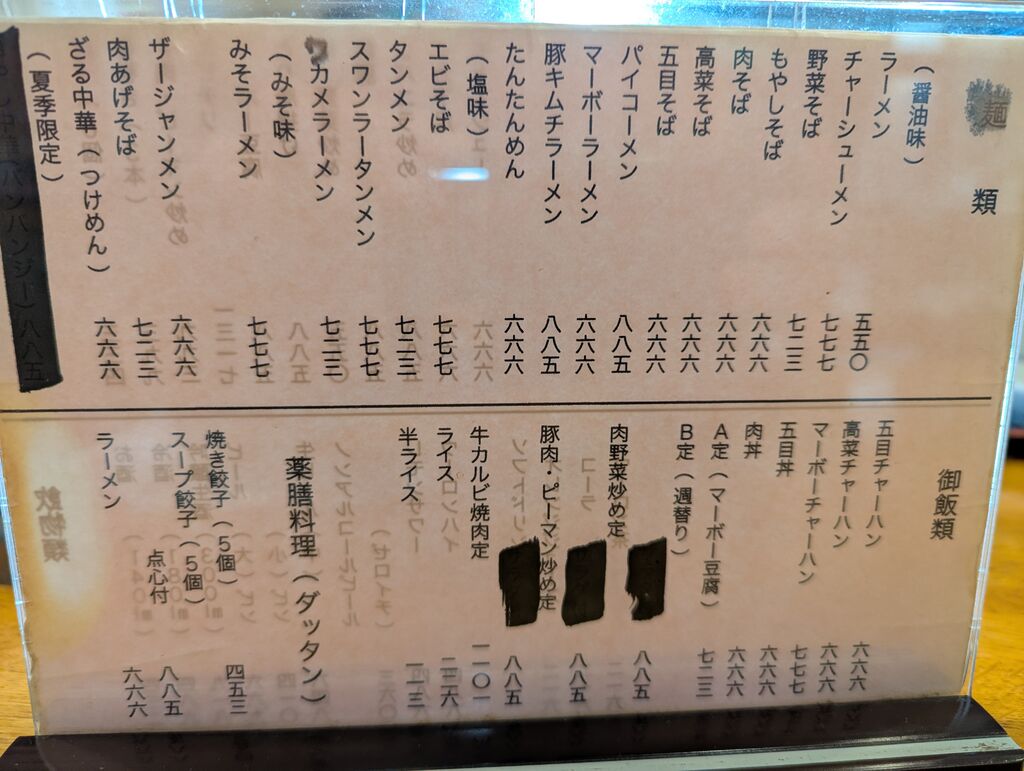 麺類
（醤油味）
ラーメン 五五〇
チャーシューメン 七七七
野菜そば 七二三
もやしそば 六六六
肉そば 六六六
高菜そば 六六六
五目そば 六六六
パイコーメン 八八五
マーボーラーメン 六六六
豚キムチラーメン 八八五
たんたんめん 六六六
（塩味）
エビそば 七七七
タンメン 七二三
スワンラータンメン 七七七
ワカメラーメン 七二三
（みそ味）
みそラーメン 七七七
ザージャンメン 六六六
肉あげそば 七二三
ざる中華（つけめん） 六六六
（夏季限定）
中華（バンバンジー） 八八五
御飯類
五目チャーハン 六六六
高菜チャーハン 六六六
マーボーチャーハン 七七七
五目丼 六六六
肉丼 六六六
A定（マーボー豆腐） 七二三
B定（週替り） 八八五
肉野菜炒め定 八八五
豚肉・ピーマン炒め定 八八五
牛カルビ焼肉定 一一〇一
ライス 二三六
半ライス 一一三
薬膳料理（ダッタン）
焼き餃子（5個） 四五三
スープ餃子（5個） 八八五
点心付
ラーメン 六六六